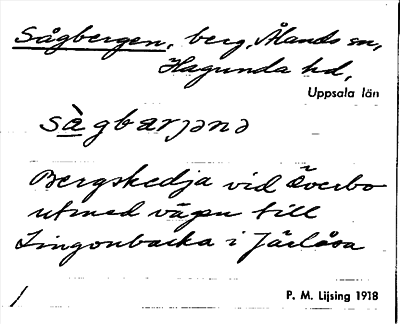 Sågbergen, berg, Ålands sn,
Hagunda hd,
Uppsala län
sàgbærjənə
Bergskedja vid Överbo
utmed vägen till
Lingonbacka i Järlåsa
/
P. M. Lijsing 1918